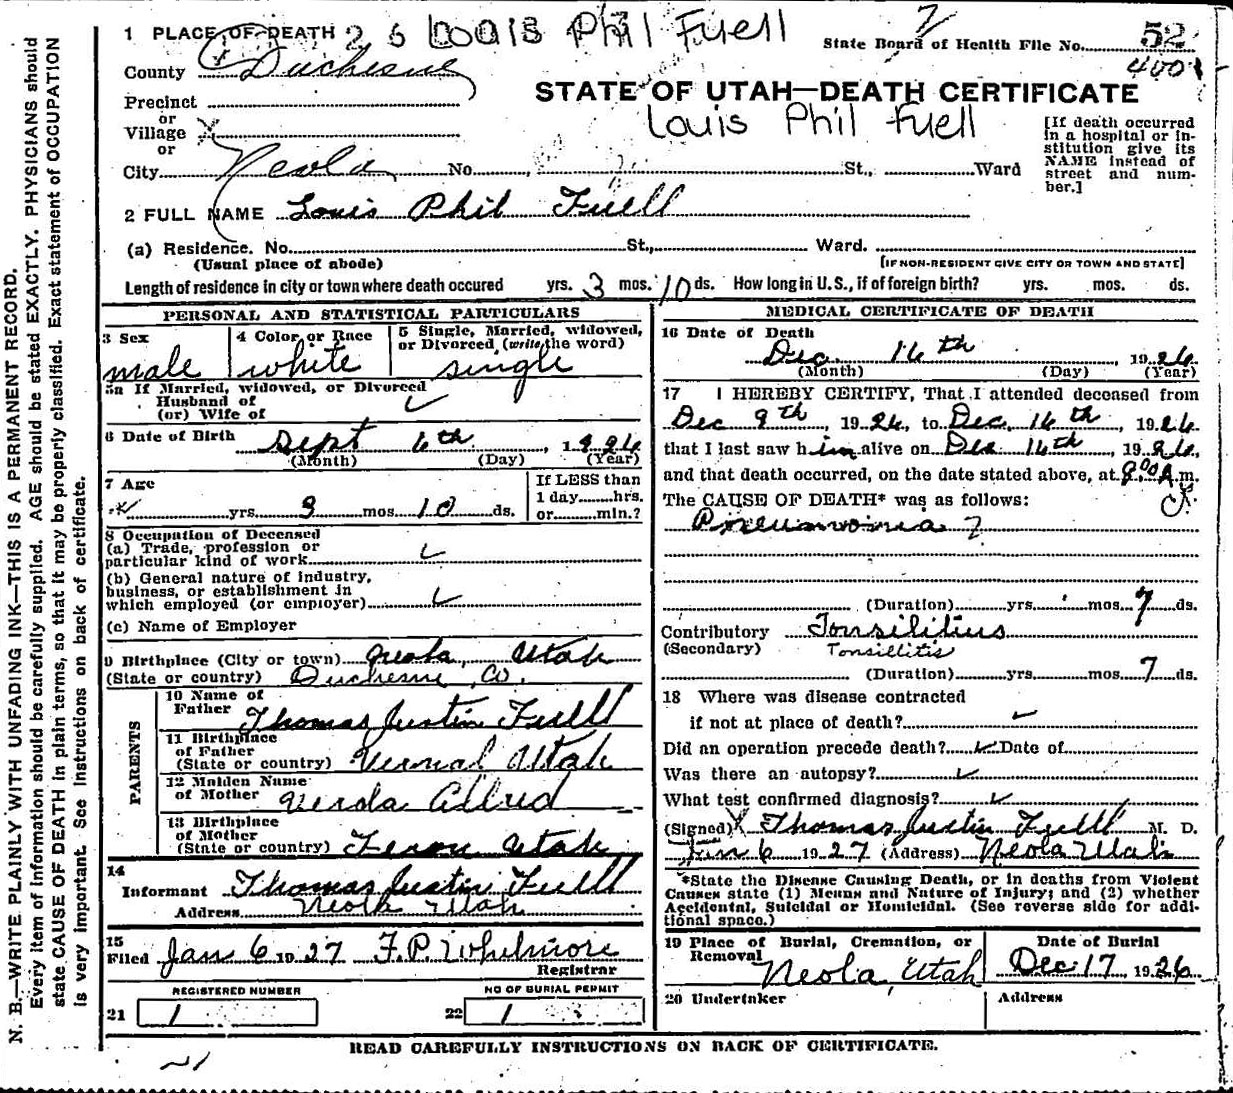 1 PLACE OF DEATH 26 Louis Phil Fuell
State Board of Health File No. 52
4001
County Duchesne
STATE OF UTAH—DEATH CERTIFICATE
Precinct
or
Village
or
Louis Phil Fuell
[If death occurred in a hospital or institution give its NAME instead of street and number.]
City Neola No. St., Ward
2 FULL NAME Louis Phil Fuell
(a) Residence. No. St., Ward.
(Usual place of abode) [IF NON-RESIDENT GIVE CITY OR TOWN AND STATE]
Length of residence in city or town where death occured yrs. 3 mos. 10 ds. How long in U.S., if of foreign birth? yrs. mos. ds.
PERSONAL AND STATISTICAL PARTICULARS
3 Sex male
4 Color or Race white
5 Single, Married, widowed, or Divorced (write the word) single
5a If Married, widowed, or Divorced
Husband of
(or) Wife of
6 Date of Birth Sept 6th, 1926
(Month) (Day) (Year)
7 Age
yrs. 3 mos 10 ds.
If LESS than
1 day hrs.
or min.?
8 Occupation of Deceased
(a) Trade, profession or
particular kind of work
(b) General nature of industry,
business, or establishment in
which employed (or employer)
(c) Name of Employer
9 Birthplace (City or town) Neola, Utah
(State or country) Duchesne Co.
PARENTS
10 Name of
Father Thomas Justin Fuell
11 Birthplace
of Father
(State or country) Vernal Utah
12 Maiden Name
of Mother Verda Allred
13 Birthplace
of Mother
(State or country) Ferron Utah
14
Informant Thomas Justin Fuell
Address Neola Utah
15
Filed Jan 6 1927 F.P. Whitmore
Registrar
REGISTERED NUMBER
21 1
NO OF BURIAL PERMIT
22 1
MEDICAL CERTIFICATE OF DEATH
16 Date of Death
Dec. 16th, 1926
(Month) (Day) (Year)
17 I HEREBY CERTIFY, That I attended deceased from
Dec 9th, 1926, to Dec, 16th, 1926
that I last saw him alive on Dec 16th, 1926,
and that death occurred, on the date stated above, at 8:00 A.m.
The CAUSE OF DEATH* was as follows:
Pneumonia
(Duration) yrs. mos. 7 ds.
Contributory Tonsilitius
(Secondary) Tonsillitis
(Duration) yrs. mos. 7 ds.
18 Where was disease contracted
if not at place of death?
Did an operation precede death? Date of
Was there an autopsy?
What test confirmed diagnosis?
(Signed) X Thomas Justin Fuell M. D.
Jan 6 1927 (Address) Neola Utah
*State the Disease Causing Death, or in deaths from Violent
Causes state (1) Means and Nature of Injury; and (2) whether
Accidental, Suicidal or Homicidal. (See reverse side for addi-
tional space.)
19 Place of Burial, Cremation, or
Removal
Neola, Utah
Date of Burial
Dec. 17 1926
20 Undertaker
Address
READ CAREFULLY INSTRUCTIONS ON BACK OF CERTIFICATE.
N. B.—WRITE PLAINLY WITH UNFADING INK—THIS IS A PERMANENT RECORD.
Every item of information should be carefully supplied. AGE should be stated EXACTLY. PHYSICIANS should
state CAUSE OF DEATH in plain terms, so that it may be properly classified. Exact statement of OCCUPATION
is very important. See instructions on back of certificate.